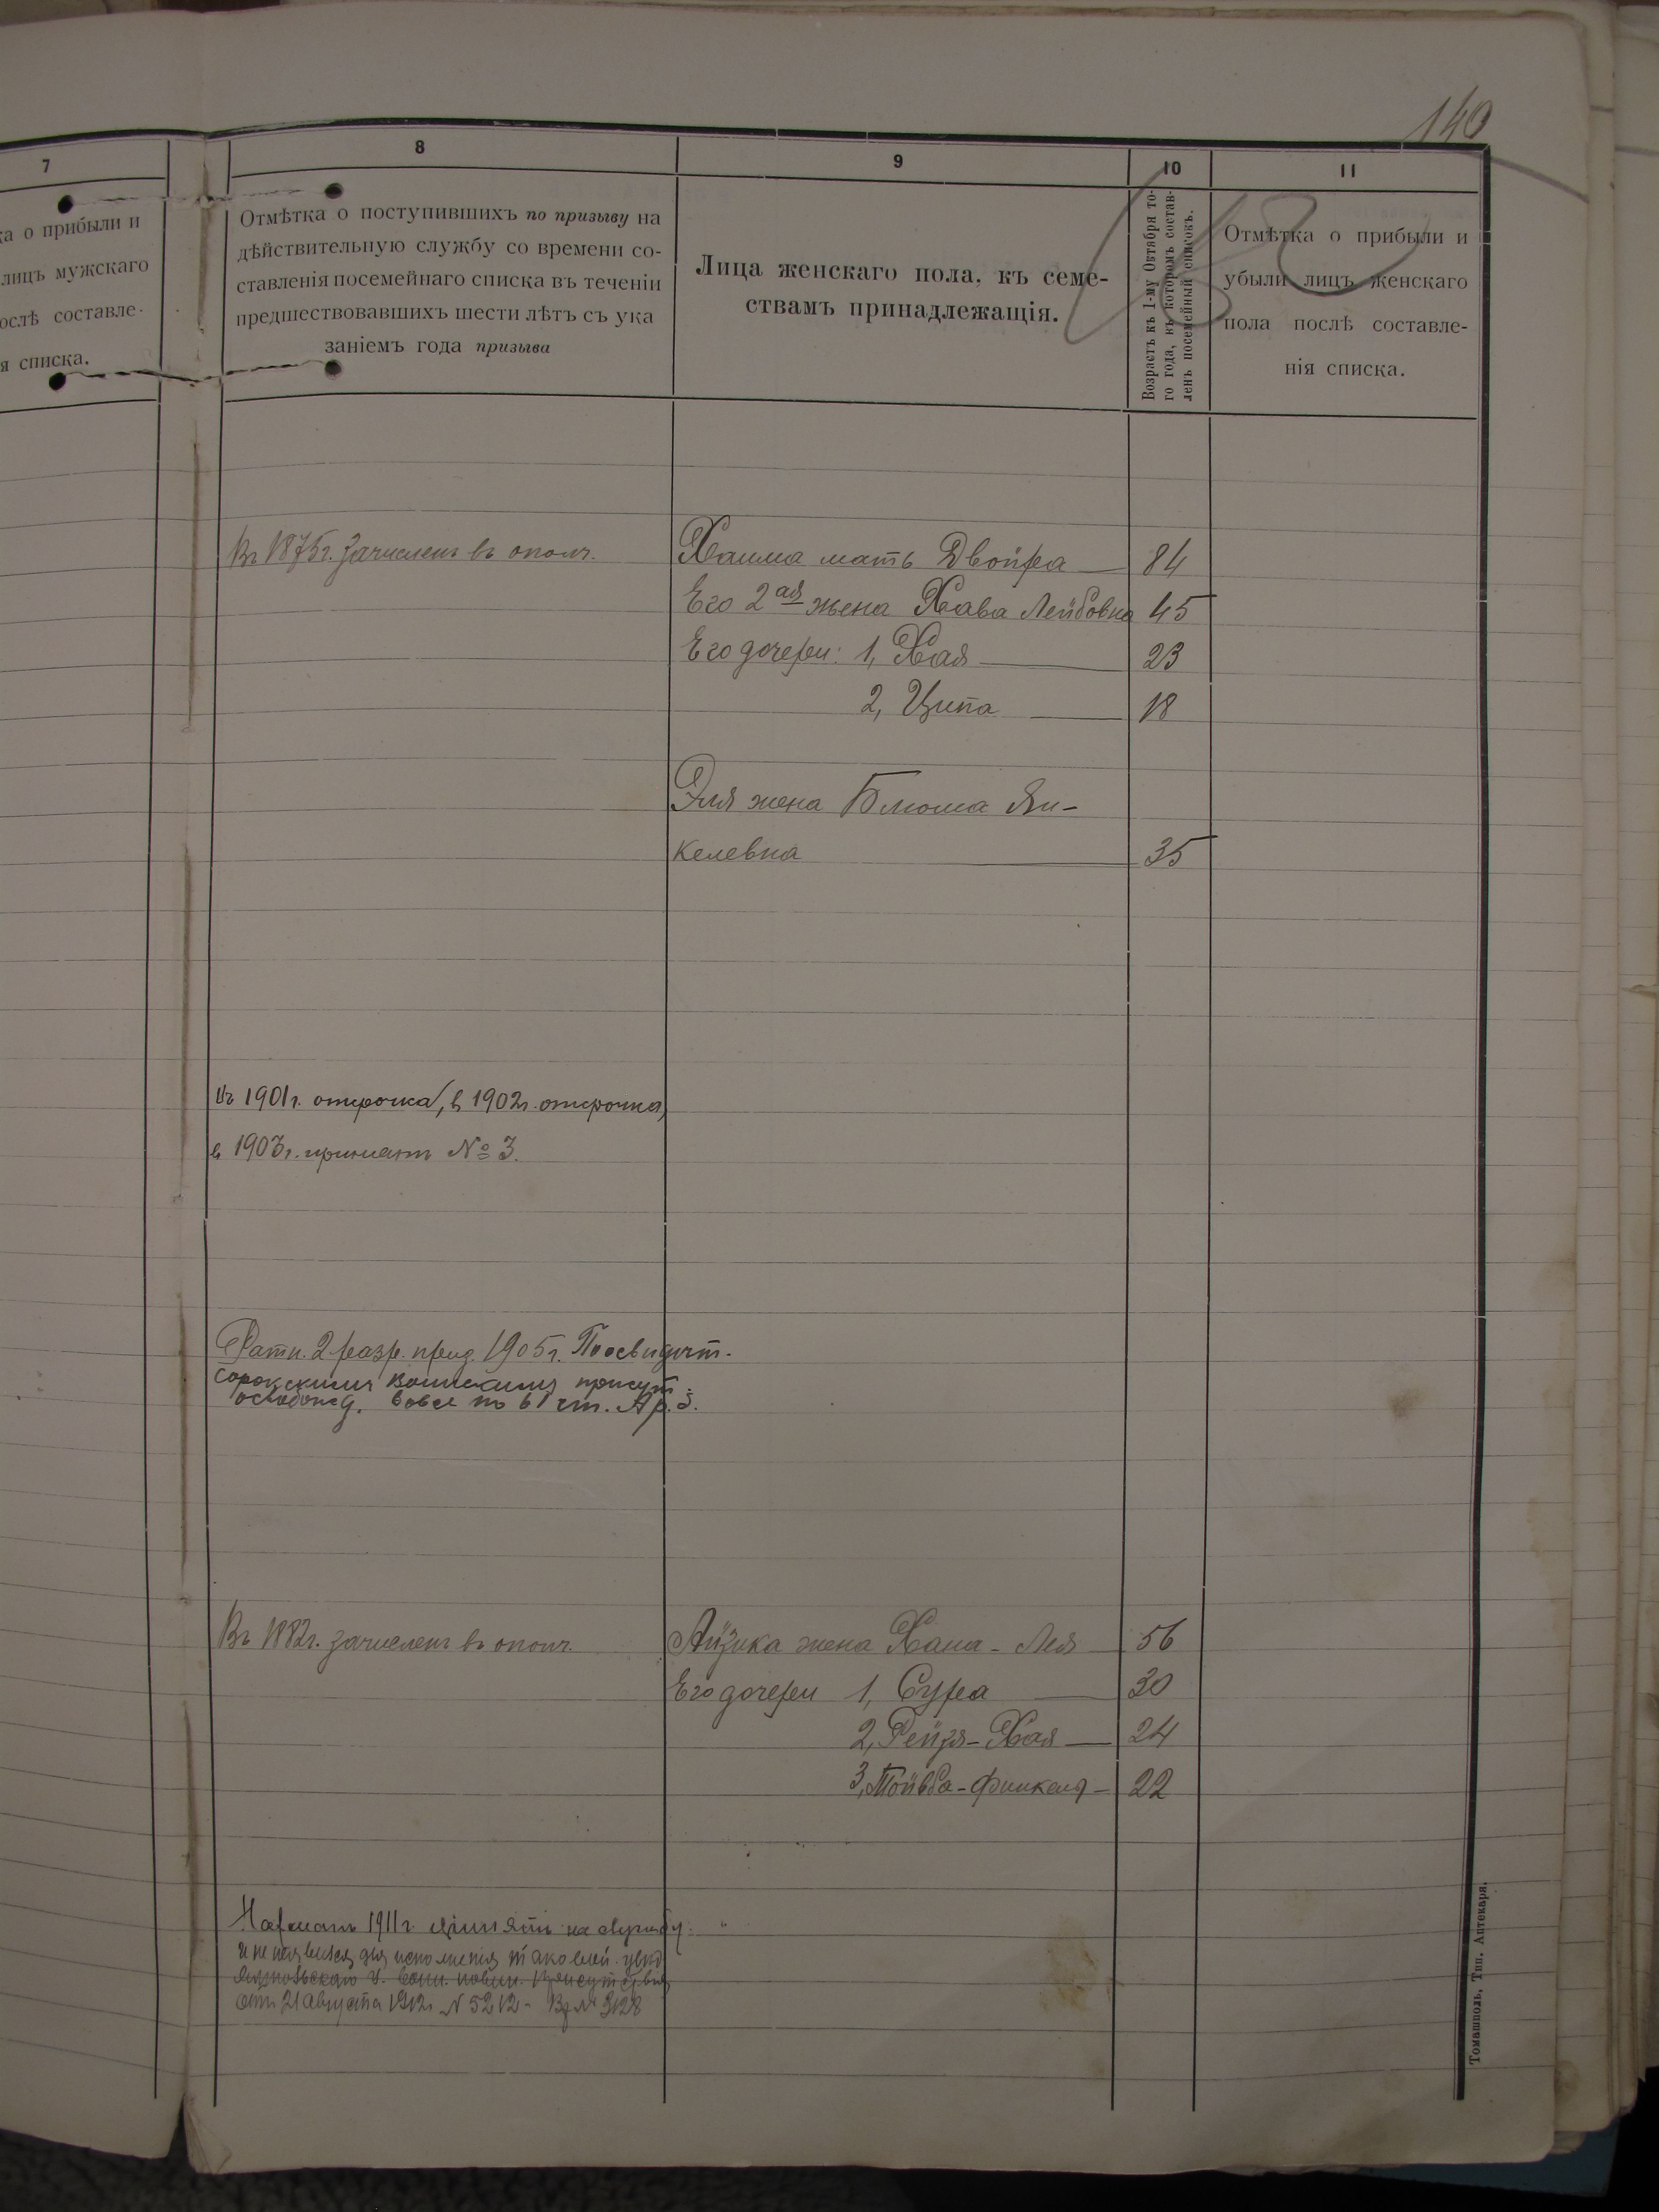 140
7
8
9
10
11
ка о прибыли и
лицъ мужскаго
ослѣ составле-
я списка.
Отмѣтка о поступившихъ по призыву на
дѣйствительную службу со времени со-
ставленія посемейнаго списка въ теченіи
предшествовавшихъ шести лѣтъ съ ука
заніемъ года призыва
Лица женскаго пола, къ семе-
ствамъ принадлежащія.
Возрастъ къ 1-му Октября то-
го года, въ которомъ состав-
ленъ посемейный списокъ.
Отмѣтка о прибыли и
убыли лицъ женскаго
пола послѣ составле-
нія списка.
Въ 1875г. зачисленъ въ ополч.
Хаима мать Двойра 84
Его 2ая жена Хава Лейбовна 45
Его дочери: 1, Хая 23
2, Ципа 18
Эля жена Блюма Ян-
келевна 35
Въ 1901г. отсрочка, в 1902г. отсрочка,
в 1903г. принятъ № 3.
Ратн. 2 разр. приз. 1905г. Посвидѣт.
Сорокскимъ Воинскимъ присут.
освобожд. вовсе по 61 ст.
Въ 1882г. зачисленъ въ ополч.
Айзика жена Хана-Лея 56
Его дочери 1, Сура 30
2, Рейзя-Хая 24
3, 22
1911г. принятъ на службу
и не явился для исполненія таковой.
воин. повин. присутствія
отъ 21 Августа 1912г. № 5212 - № 3128
Томашполь, Тип. Аптекаря.